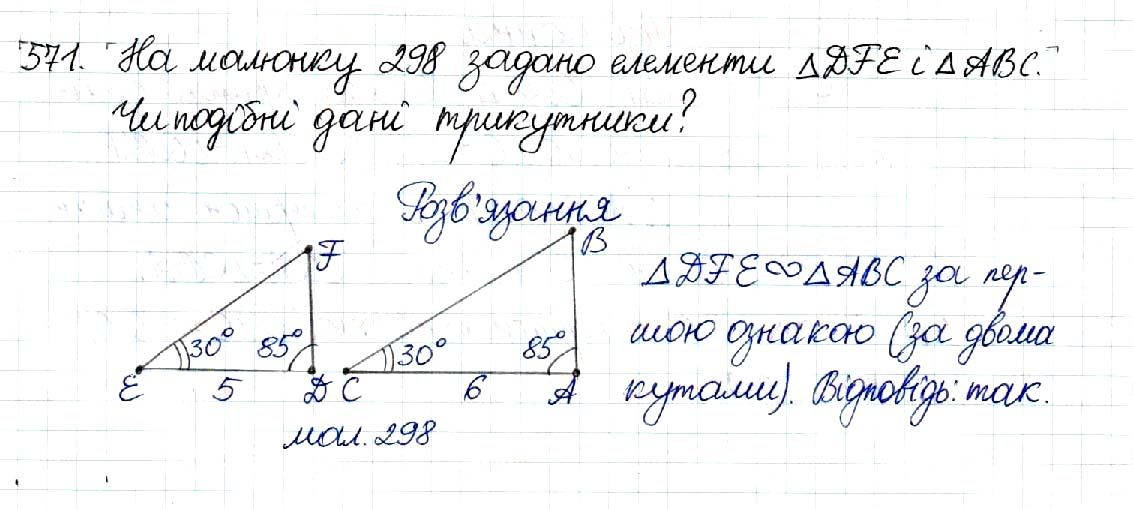 571. На малюнку 298 задано елементи △DFE і △ABC.
Чи подібні дані трикутники?
Розв'язання
F
B
30° 85°
30° 85°
E 5 D C 6 A
мал. 298
△DFE∾△ABC за пер-
шою ознакою (за двома
кутами). Відповідь: так.